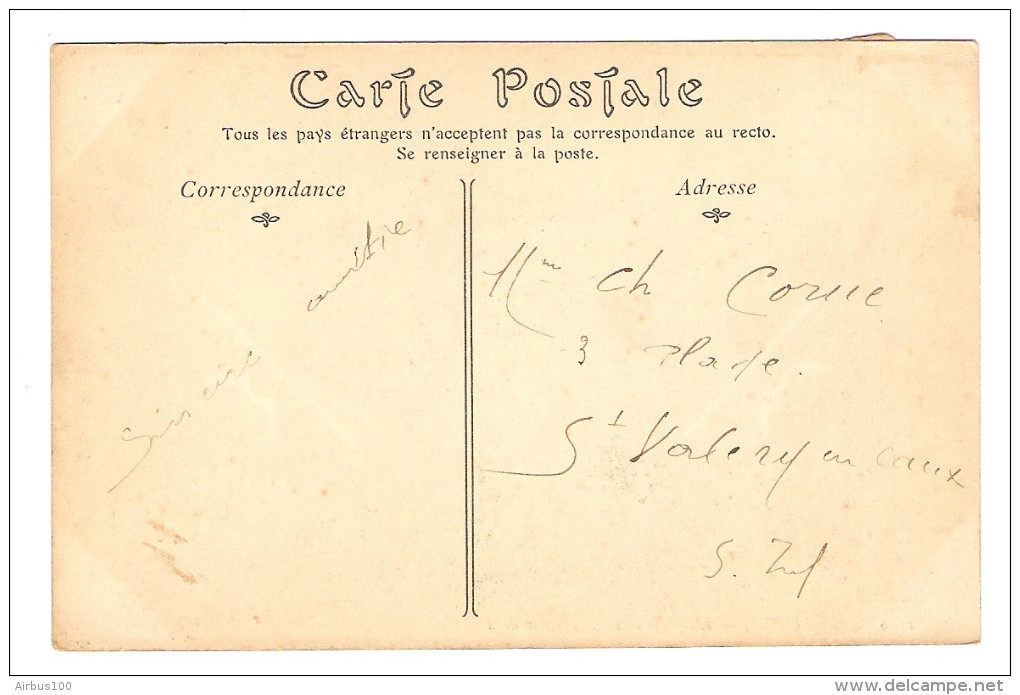 Carte Postale
Tous les pays étrangers n'acceptent pas la correspondance au recto.
Se renseigner à la poste.
Correspondance
Adresse
Sincère amitié
Mme Ch Corue
3 Plage.
St Valery en caux
S. Inf
Airbus100
delcampe.net